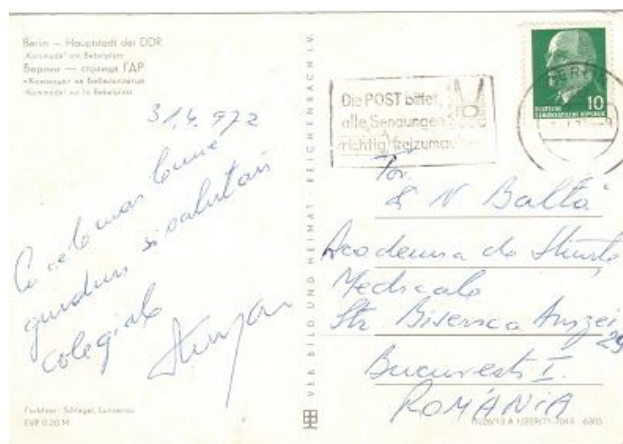 Berlin — Hauptstadt der DDR
„Kommode“ am Bebelplatz
Берлин — столица ГДР
«Коммоде» на Бебельплатце
«Kommode» sur la Bebelplatz
Cu cele mai bune
gânduri si salutari
colegiale
Farbfoto: Schlegel,
EVP 0.20 M
VEB BILD UND HEIMAT REICHENBACH i.V.
Die POST bittet,
alle Sendungen
richtig freizumachen
BERLIN
10
DEUTSCHE
DEMOKRATISCHE REPUBLIK
Tov.
N Baltă
Academia de Stiinte
Medicale
Str Biserica Amzei 29
Bucuresti I.
ROMÂNIA